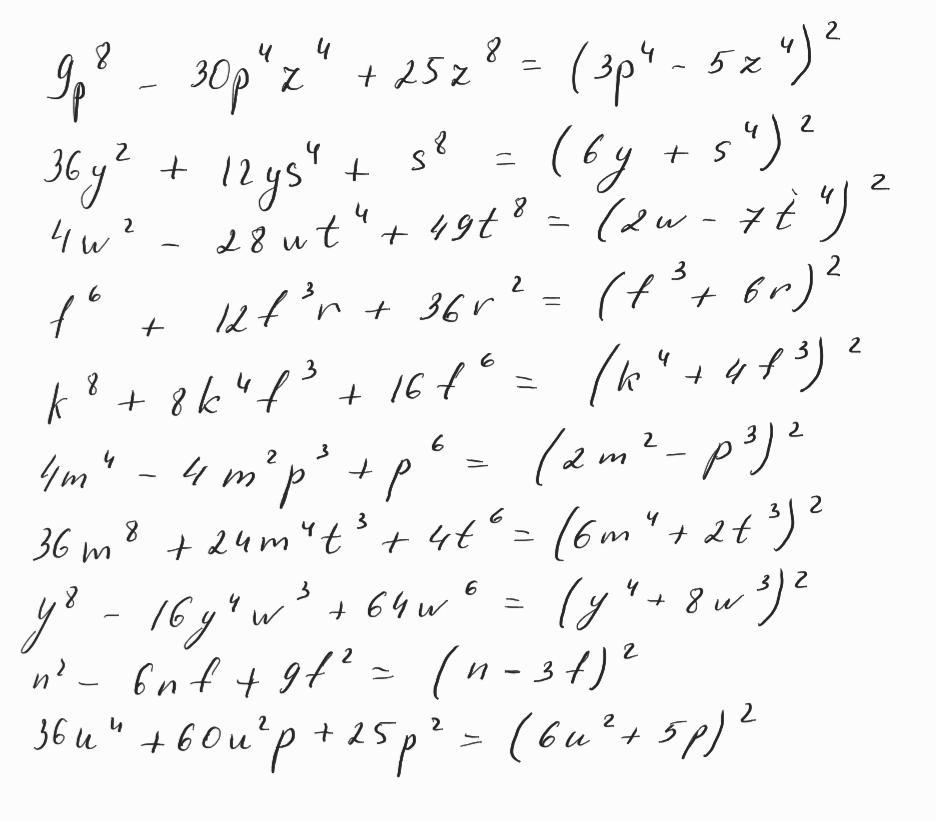 9p⁸ - 30p⁴z⁴ + 25z⁸ = (3p⁴ - 5z⁴)²
36y² + 12ys⁴ + s⁸ = (6y + s⁴)²
4w² - 28wt⁴ + 49t⁸ = (2w - 7t⁴)²
f⁶ + 12f³r + 36r² = (f³ + 6r)²
k⁸ + 8k⁴f³ + 16f⁶ = (k⁴ + 4f³)²
4m⁴ - 4m²p³ + p⁶ = (2m² - p³)²
36m⁸ + 24m⁴t³ + 4t⁶ = (6m⁴ + 2t³)²
y⁸ - 16y⁴w³ + 64w⁶ = (y⁴ + 8w³)²
n² - 6nf + 9f² = (n - 3f)²
36u⁴ + 60u²p + 25p² = (6u² + 5p)²